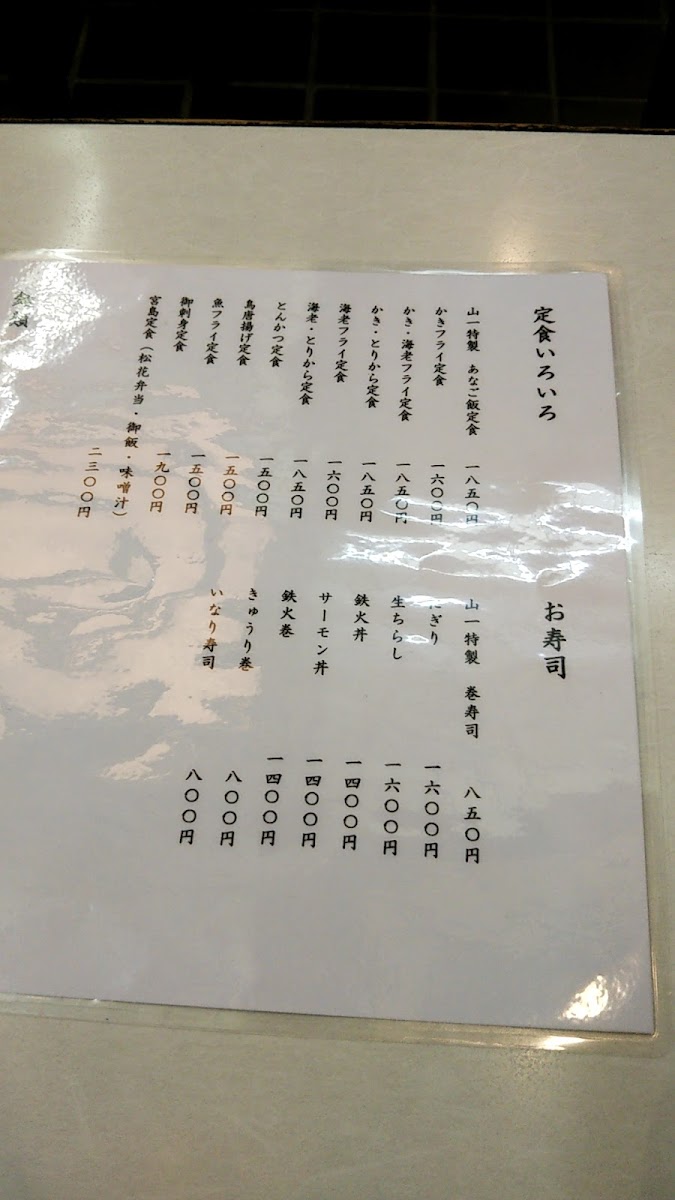 定食いろいろ
山一特製 あなご飯定食 一八五〇円
かきフライ定食 一六〇〇円
かき・海老フライ定食 一八五〇円
かき・とりから定食 一八五〇円
海老フライ定食 一六〇〇円
海老・とりから定食 一八五〇円
とんかつ定食 一五〇〇円
鳥唐揚げ定食 一五〇〇円
魚フライ定食 一五〇〇円
御刺身定食 一九〇〇円
宮島定食（松花弁当・御飯・味噌汁）
二三〇〇円
お寿司
山一特製 巻寿司 八五〇円
にぎり 一六〇〇円
生ちらし 一六〇〇円
鉄火丼 一四〇〇円
サーモン丼 一四〇〇円
鉄火巻 一四〇〇円
きゅうり巻 八〇〇円
いなり寿司 八〇〇円